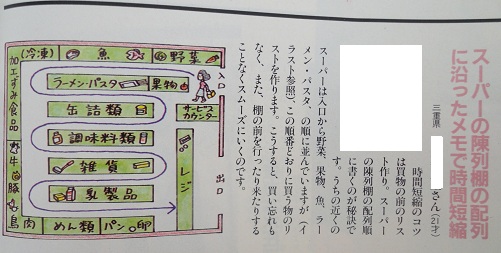 スーパーの陳列棚の配列
に沿ったメモで時間短縮
三重県
さん(21才)
時間短縮のコツ
は買物の前のリス
ト作り。スーパー
の陳列棚の配列順
に書くのが秘訣で
す。うちの近くの
スーパーは入口から野菜、果物、魚、ラー
メン・パスタ、の順に並んでいますが(イ
ラスト参照)、この順番どおりに買う物のリ
ストを作ります。こうすると、買い忘れも
なく、また、棚の前を行ったり来たりする
ことなくスムーズにいくのです。
(冷凍)
魚
野菜
ラーメン・パスタ
果物
入口
缶詰類
サービス
カウンター
調味料類
雑貨
レジ
出口
乳製品
加工ずみ食品
牛
豚
鳥肉
めん類
パン
卵